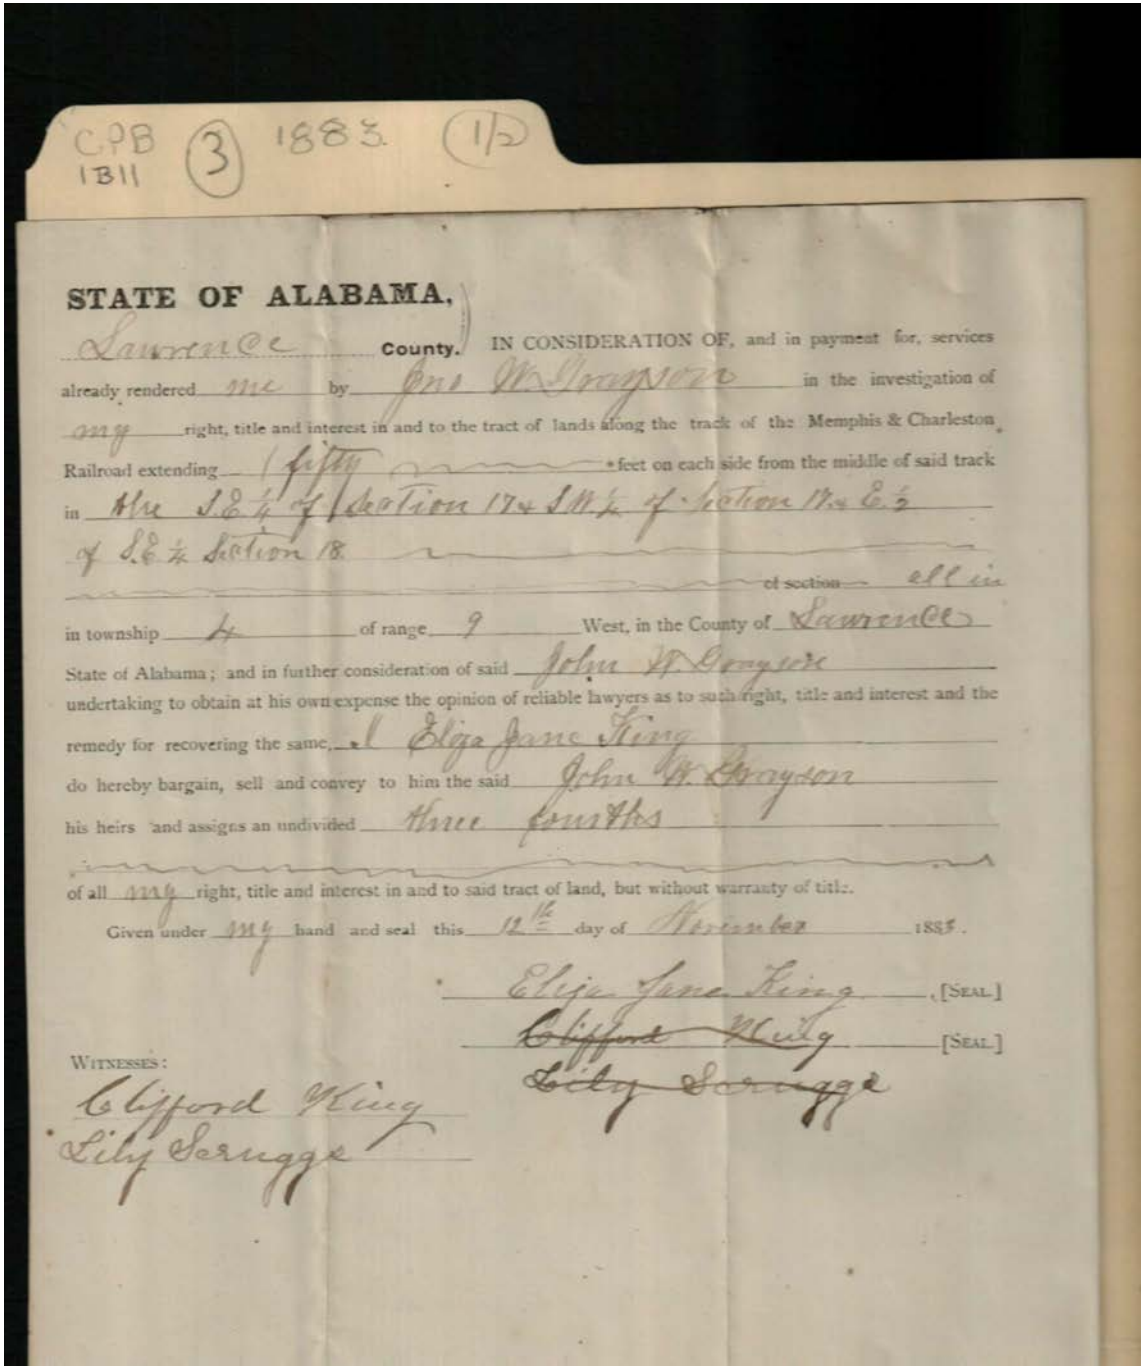 CPB 3 1883. 1/2
1B11
STATE OF ALABAMA,
Lawrence County. IN CONSIDERATION OF, and in payment for, services
already rendered me by Jno W. Grayson in the investigation of
my right, title and interest in and to the tract of lands along the track of the Memphis & Charleston
Railroad extending fifty feet on each side from the middle of said track
in the S.E ¼ of Section 17 & S.W ¼ of Section 17 & E. ½
of S.E ¼ Section 18.
of section all in
in township 4 of range 9 West, in the County of Lawrence
State of Alabama; and in further consideration of said John W. Grayson
undertaking to obtain at his own expense the opinion of reliable lawyers as to such right, title and interest and the
remedy for recovering the same, I Eliza Jane King
do hereby bargain, sell and convey to him the said John W. Grayson
his heirs and assigns an undivided three fourths
of all my right, title and interest in and to said tract of land, but without warranty of title.
Given under my hand and seal this 12th day of November 1883.
Eliza Jane King [SEAL]
Clifford King [SEAL]
Lily Scruggs
WITNESSES:
Clifford King
Lily Scruggs